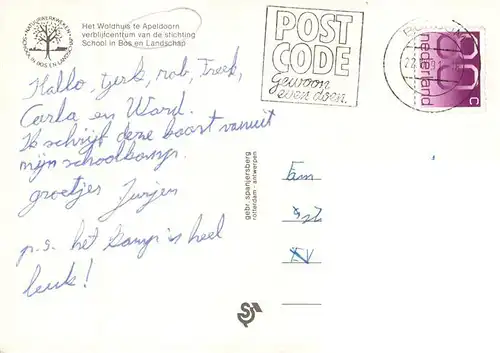 Het Woldhuis te Apeldoorn
verblijfcentrum van de stichting
School in Bos en Landschap
POST
CODE
Gewoon
even doen.
nederland
c
Hallo, Tjerk, rob, Freek,
Carla en Ward.
Ik schrijf deze kaart vanuit
mijn schoolkamp.
groetjes Jurjen
p.s. het kamp is heel
leuk!
gebr. spanjersberg
rotterdam - antwerpen
Fam